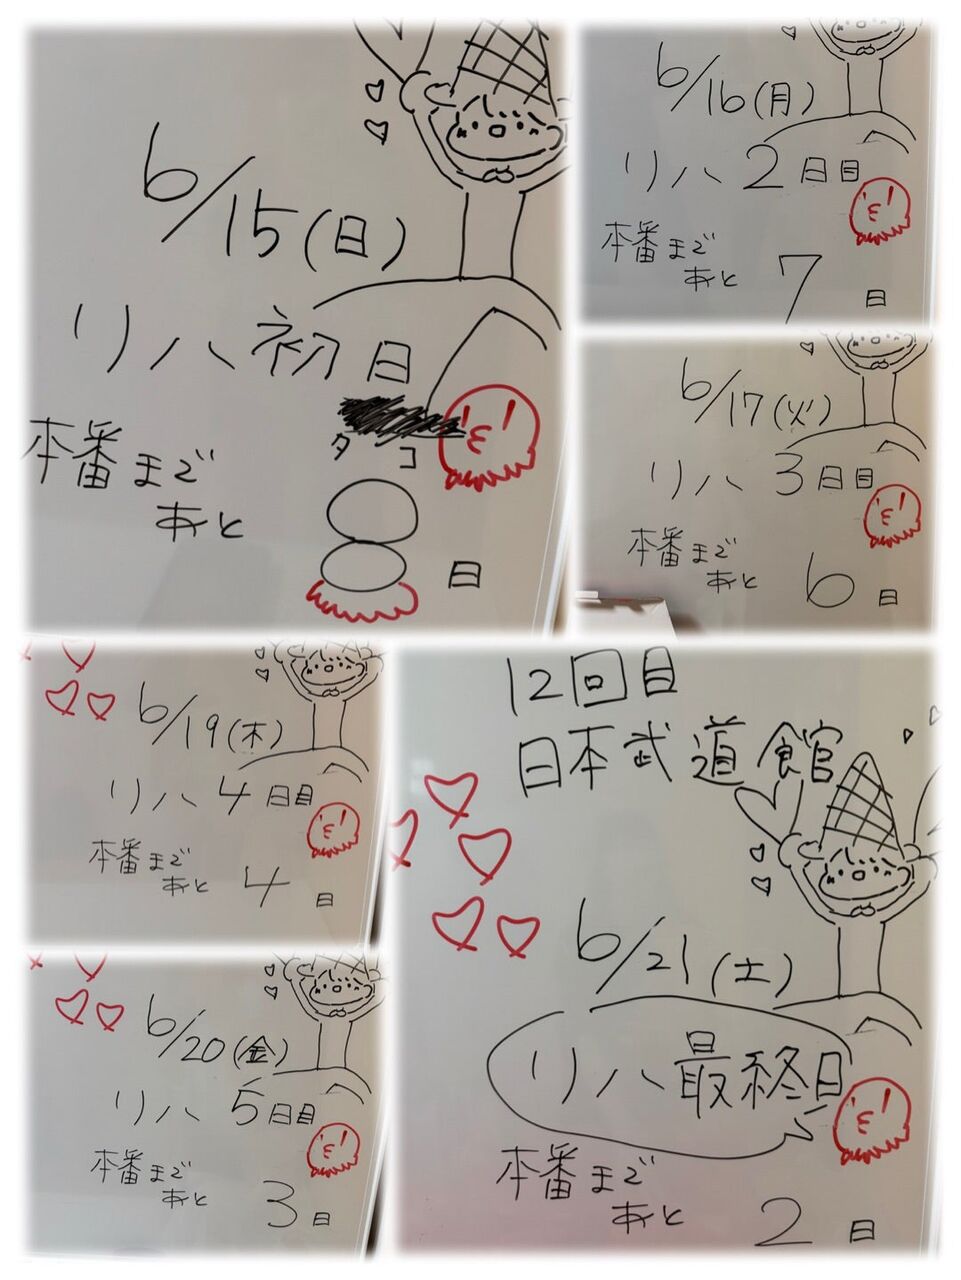 6/15(日)
リハ初日
タコ
本番まで
あと 8 日
6/16(月)
リハ2日目
本番まで
あと 7 日
6/17(火)
リハ 3日目
本番まで
あと 6 日
6/19(木)
リハ 4日目
本番まで
あと 4 日
6/20(金)
リハ 5日目
本番まで
あと 3 日
12回目
日本武道館
6/21(土)
リハ最終日
本番まで
あと 2 日